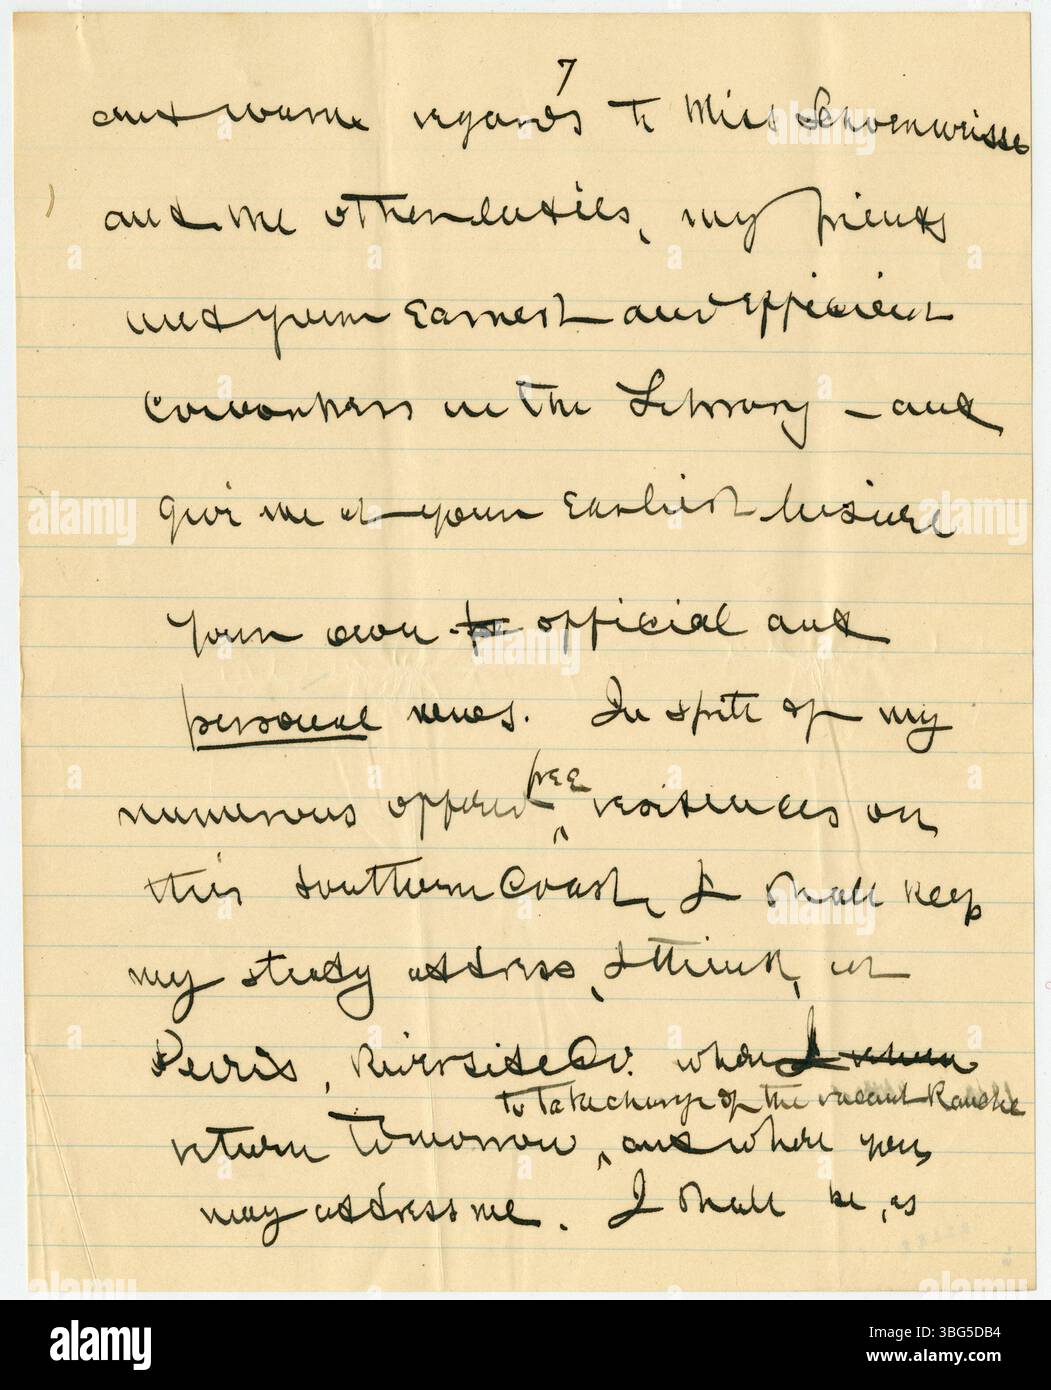 7
and warm regards to Miss Schoenweisse
and the other ladies, my friends
and your earnest and efficient
coworkers in the Library – and
give me at your earliest leisure
your own official and
personal news. In spite of my
numerous offered free residences on
this southern Coast, I shall keep
my steady address, I think, at
Perris, Riverside Co. where I return
to take charge of the vacant Ranche
return tomorrow, and where you
may address me. I shall be, as
alamy
Image ID: 3BG5DB4
www.alamy.com